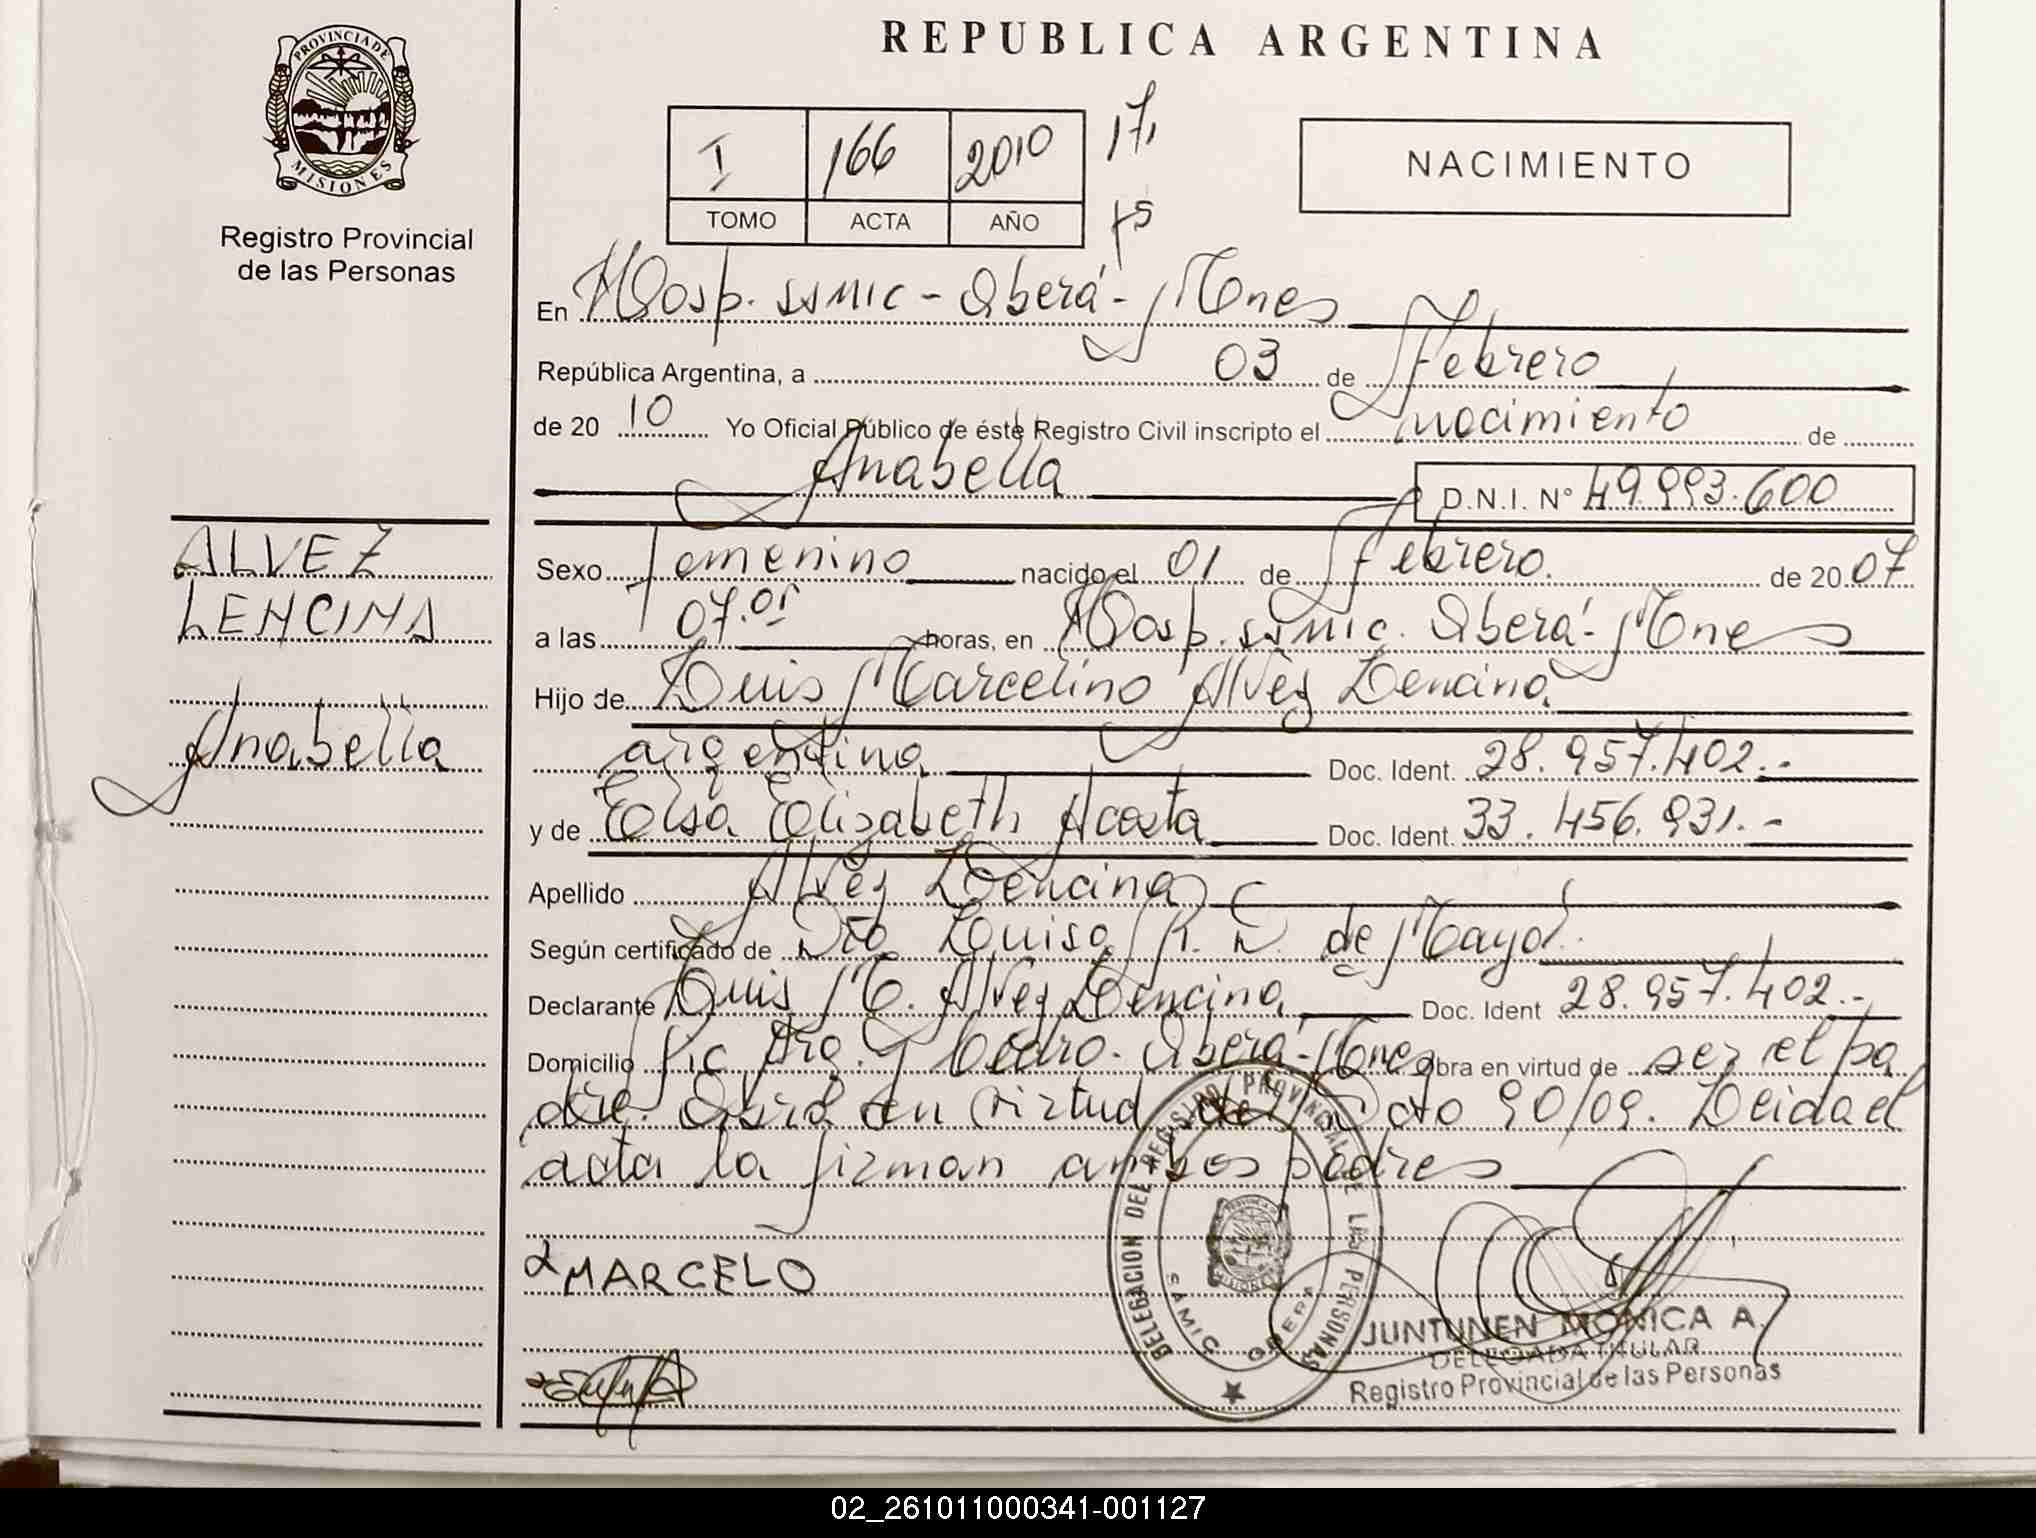 REPUBLICA ARGENTINA
PROVINCIA DE MISIONES
Registro Provincial
de las Personas
I 166 2010 171
TOMO ACTA AÑO
NACIMIENTO
En Hosp. SSMIC - Oberá - Mnes
República Argentina, a 03 de Febrero
de 20 10 Yo Oficial Público de éste Registro Civil inscripto el nacimiento de
Anabella D.N.I. Nº 49.993.600
ALVEZ
LENCINA
Anabella
Sexo Femenino nacido el 01 de Febrero de 20 07
a las 07.05 horas, en Hosp. SSMIC. Oberá - Mnes
Hijo de Luis Marcelino Alvez Lencina
argentina Doc. Ident. 28.957.402.-
y de Elsa Elizabeth Acosta Doc. Ident. 33.456.931.-
Apellido Alvez Lencina
Según certificado de Dra Louisa R. D. de Mayol
Declarante Luis M. Alvez Lencina Doc. Ident 28.957.402.-
Domicilio Pic Arg. y Cedro. Oberá - Mnes Obra en virtud de ser el pa
dre. Obra en virtud del Dcto 90/09. Leida el
acta la firman ambos padres
MARCELO
DELEGACION DEL REGISTRO PROVINCIAL DE LAS PERSONAS
SAMIC OBERA
JUNTUNEN MONICA A.
DELEGADA TITULAR
Registro Provincial de las Personas
02_261011000341-001127